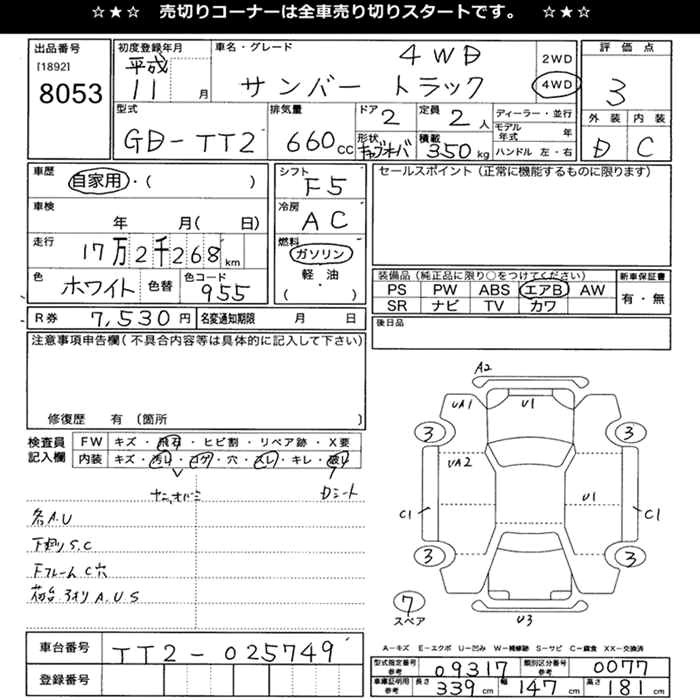 ☆★☆ 売切りコーナーは全車売り切りスタートです。 ☆★☆
出品番号 初度登録年月 車名・グレード 評価点
[1892] 平成 4WD 2WD
8053 11 月 サンバー トラック 4WD 3
型式 排気量 ドア 定員 ディーラー・並行 外装 内装
GD-TT2 660cc 2 2人 モデル年式 年 D C
形状 キャブオーバ 積載 350kg ハンドル 左・右
車歴 自家用・( ) シフト F5 セールスポイント(正常に機能するものに限ります)
車検 年 月( 日) 冷房 AC
走行 17万2千268km 燃料 ガソリン
軽・油
( )
色 ホワイト 色替 色コード 955
装備品(純正品に限り○をつけてください) 新車保証書
PS PW ABS エアB AW 有・無
SR ナビ TV カワ
R券 7,530円 名変通知期限 月 日 後日品
注意事項申告欄(不具合内容等は具体的に記入して下さい)
修復歴 有 〔箇所 〕
検査員記入欄 FW キズ・飛石・ヒビ割・リペア跡・X要
内装 キズ・汚れ・コゲ・穴・スレ・キレ・破レ
Dシート
各A.U
下廻りS.C
FフレームC穴
荷台ヨオリA.U.S
A2
UA1 U1
3 3
UA2
U1
C1 C1
3 3
7
スペア
U3
A-キズ E-エクボ U-凹み W-補修跡 S-サビ C-腐食 XX-交換済
車台番号 TT2-025749
登録番号
型式指定番号 参考 09317 類別区分番号 参考 0077
車庫証明用 参考 長さ 339cm 幅 147cm 高さ 181cm